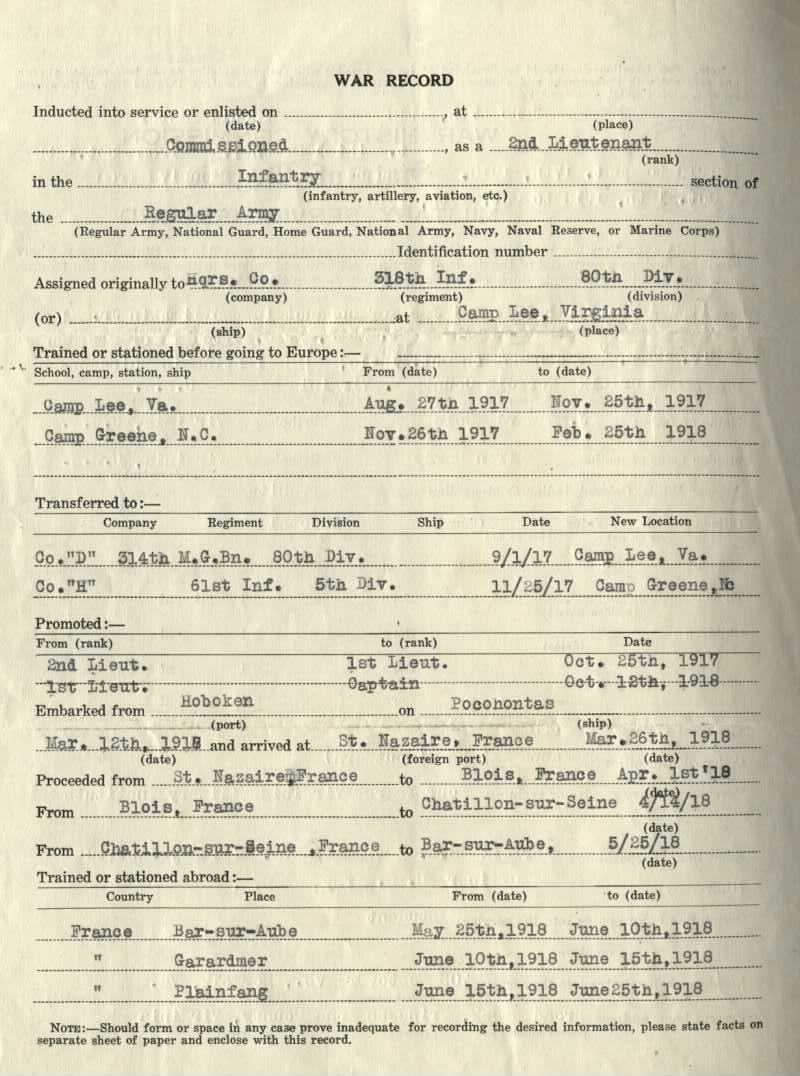 WAR RECORD
Inducted into service or enlisted on , at
(date) (place)
Commissioned , as a 2nd Lieutenant
(rank)
in the Infantry section of
(infantry, artillery, aviation, etc.)
the Regular Army
(Regular Army, National Guard, Home Guard, National Army, Navy, Naval Reserve, or Marine Corps)
Identification number
Assigned originally to Hqrs. Co. 318th Inf. 80th Div.
(company) (regiment) (division)
(or) at Camp Lee, Virginia
(ship) (place)
Trained or stationed before going to Europe:—
School, camp, station, ship From (date) to (date)
Camp Lee, Va. Aug. 27th 1917 Nov. 25th, 1917
Camp Greene, N.C. Nov.26th 1917 Feb. 25th 1918
Transferred to:—
Company Regiment Division Ship Date New Location
Co."D" 314th M.G.Bn. 80th Div. 9/1/17 Camp Lee, Va.
Co."H" 61st Inf. 5th Div. 11/25/17 Camp Greene,Nc
Promoted:—
From (rank) to (rank) Date
2nd Lieut. 1st Lieut. Oct. 25th, 1917
1st Lieut. Captain Oct. 12th, 1918
Embarked from Hoboken on Pocohontas
(port) (ship)
Mar. 12th, 1918 and arrived at St. Nazaire, France Mar.26th, 1918
(date) (foreign port) (date)
Proceeded from St. Nazaire, France to Blois, France Apr. 1st'18
(date)
From Blois, France to Chatillon-sur-Seine 4/14/18
(date)
From Chatillon-sur-Seine ,France to Bar-sur-Aube, 5/25/18
(date)
Trained or stationed abroad:—
Country Place From (date) to (date)
France Bar-sur-Aube May 25th,1918 June 10th,1918
" Garardmer June 10th,1918 June 15th,1918
" Plainfang June 15th,1918 June25th,1918
NOTE:—Should form or space in any case prove inadequate for recording the desired information, please state facts on
separate sheet of paper and enclose with this record.